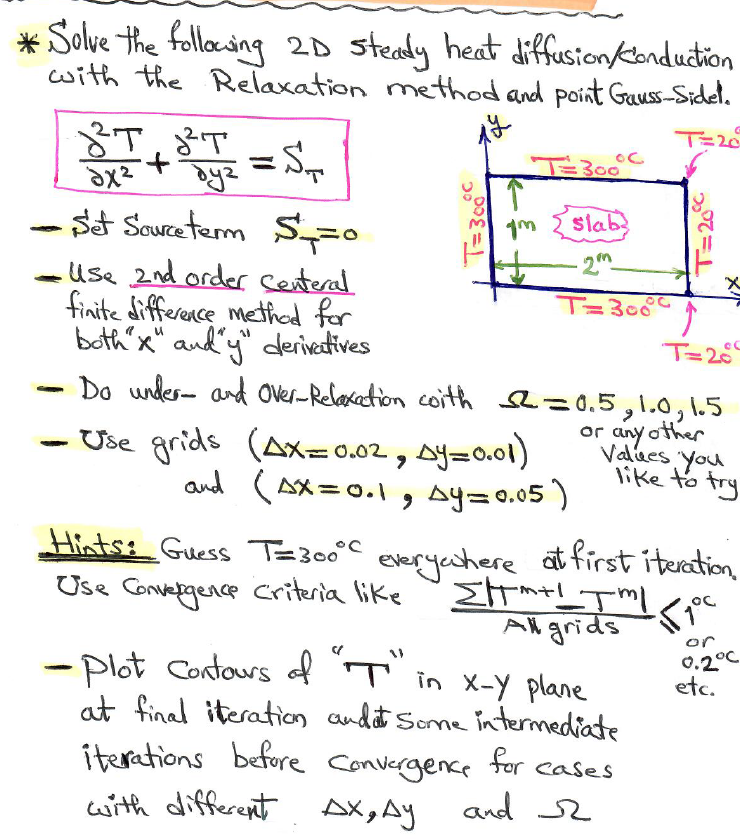 * Solve the following 2D steady heat diffusion/conduction
with the Relaxation method and point Gauss-Sidel.
∂²T/∂x² + ∂²T/∂y² = S_T
y
T=20
T=300°C
T=300°C
1m
slab
T=20°C
2m
x
T=300°C
T=20°C
- Set Source term S_T=0
- Use 2nd order Centeral
finite difference method for
both "x" and "y" derivatives
- Do under- and Over-Relaxation with Ω = 0.5, 1.0, 1.5
or any other
Values you
like to try
- Use grids (Δx=0.02, Δy=0.01)
and (Δx=0.1, Δy=0.05)
Hints: Guess T=300°C everywhere at first iteration.
Use Convergence criteria like Σ|T^m+1 - T^m| / All grids ≤ 1°C
or
0.2°C
etc.
- Plot Contours of "T" in x-y plane
at final iteration and at some intermediate
iterations before Convergence for cases
with different Δx, Δy and Ω